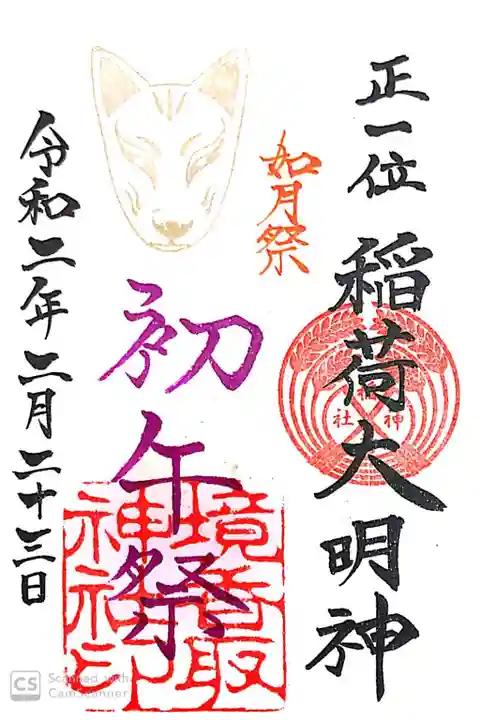 正一位 稲荷大明神
神社
如月祭
初午祭
境香取神社印
令和二年二月二十三日
CS Scanned with CamScanner